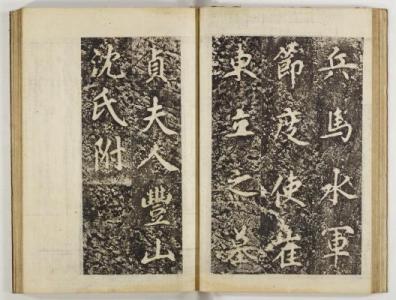 兵馬水軍
節度使崔
東立之墓
貞夫人豐山
沈氏附